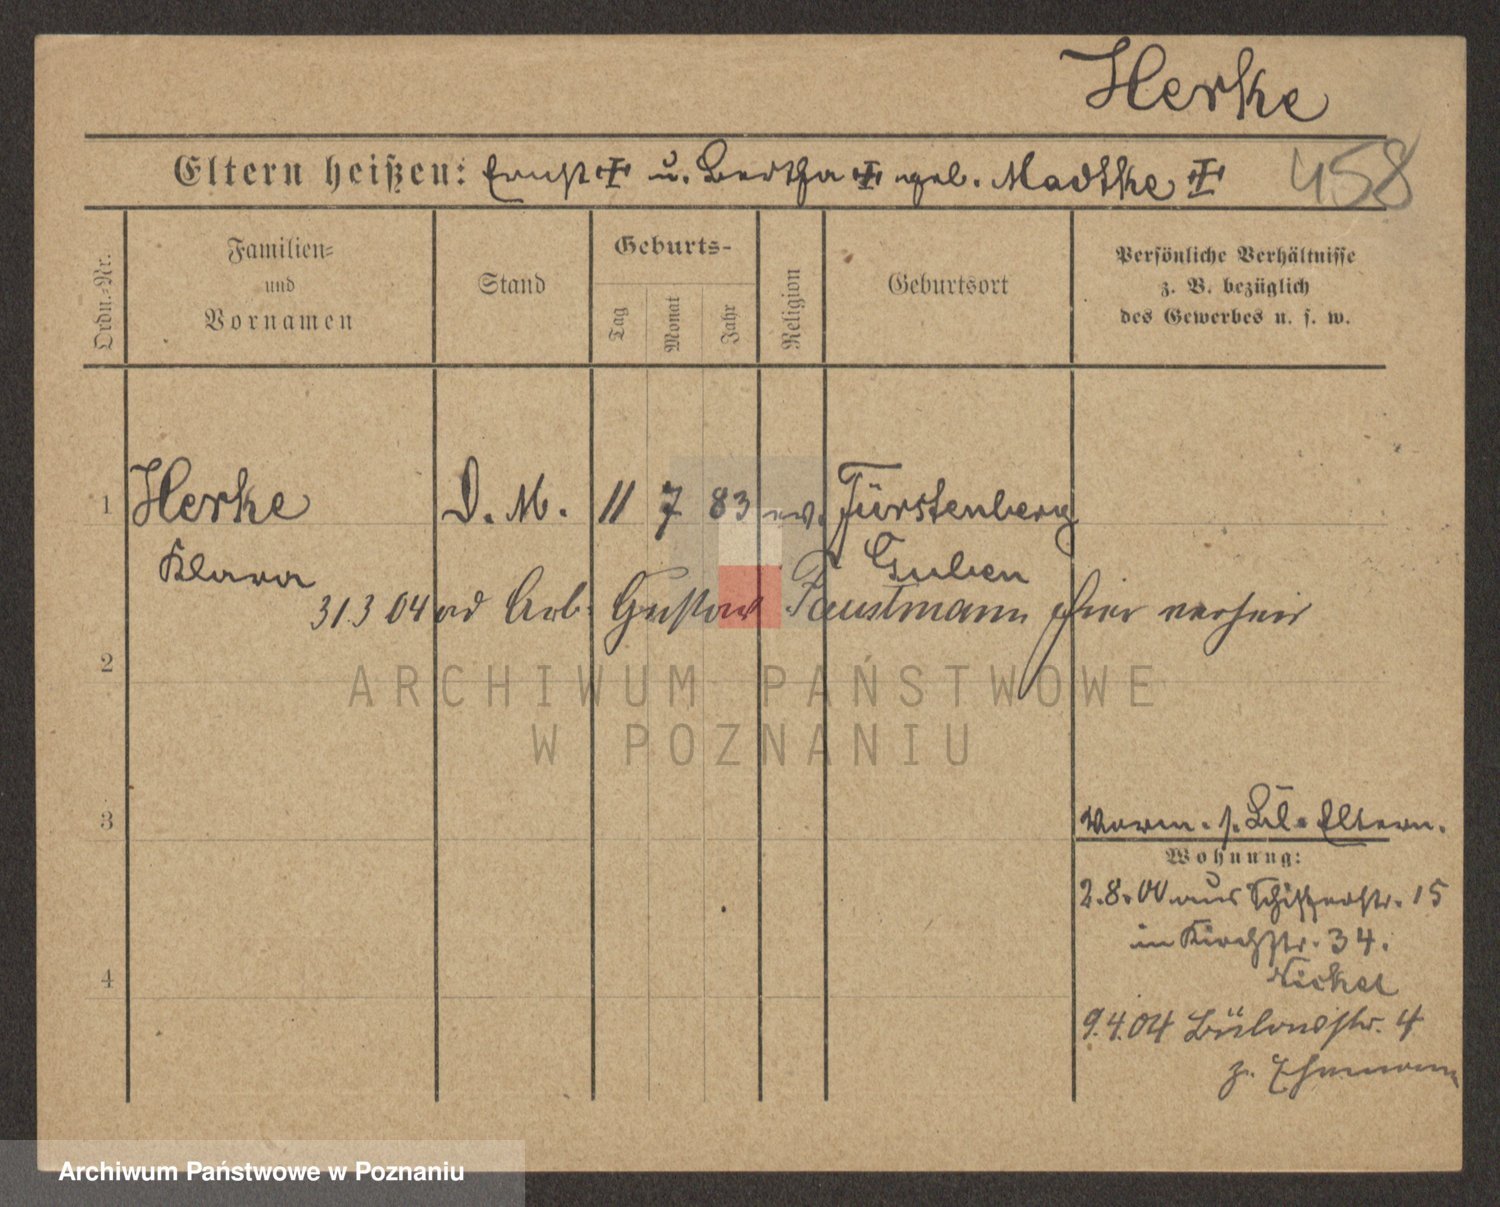 Herke
458
Eltern heißen: Ernst ‡ u. Bertha ‡ geb. Madtke ‡
Ordn.-Nr.
Familien-
und
Vornamen
Stand
Geburts-
Tag
Monat
Jahr
Religion
Geburtsort
Persönliche Verhältnisse
z. B. bezüglich
des Gewerbes u. s. w.
1 Herke D. M. 11 7 83 ev. Fürstenberg
Klara Guben
31.3 04 Arb. Gustav Faustmann hier verheir
2
ARCHIWUM PAŃSTWOWE
W POZNANIU
3
Vorm. s. Eltern.
Wohnung:
2.8.00 aus Schifferstr. 15
in Kirchstr. 34.
Nickel
4
9.4.04 Bülowstr. 4
z. Ehemann
Archiwum Państwowe w Poznaniu